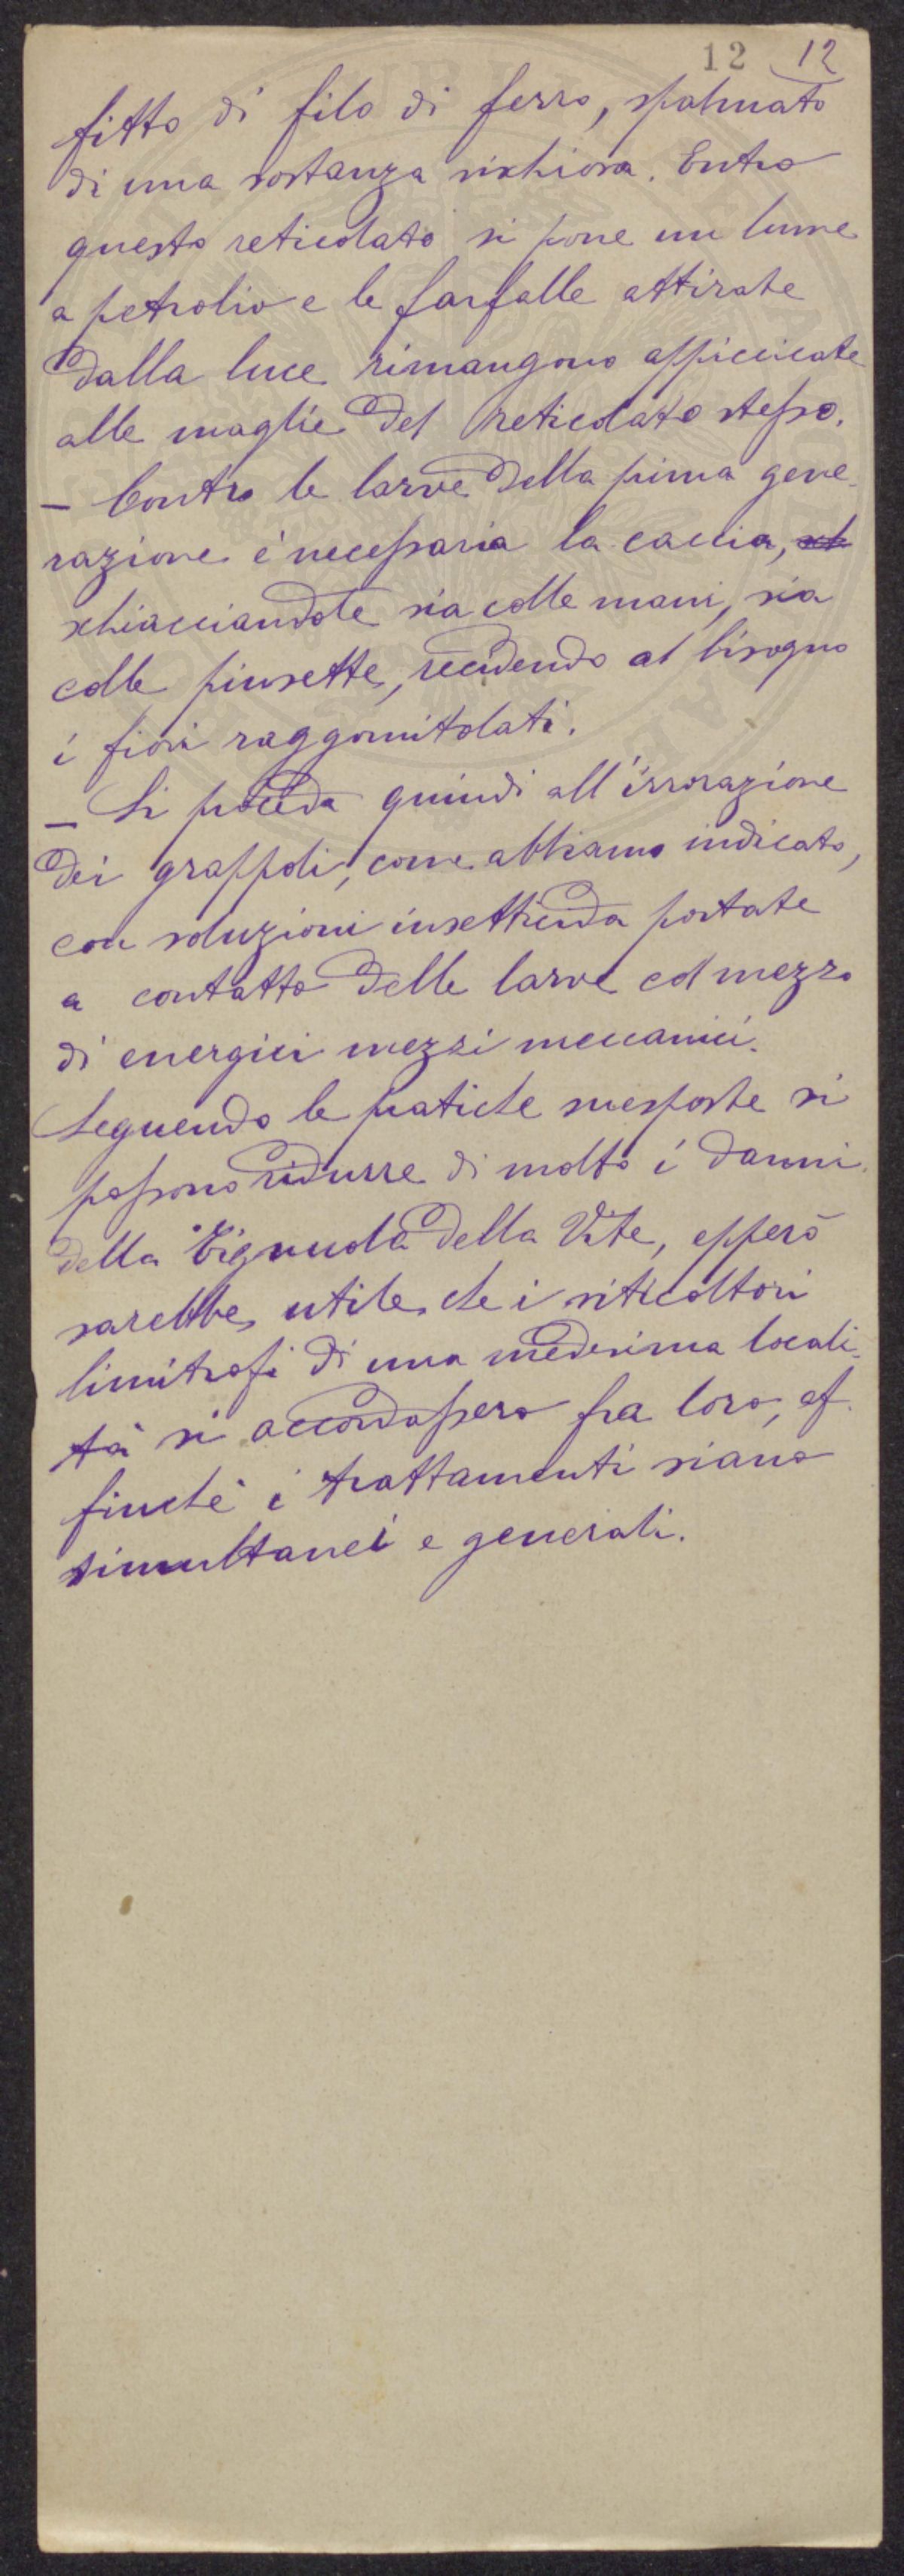 12 12
fitto di filo di ferro, spalmato
di una sostanza vischiosa. Entro
questo reticolato si pone un lume
a petrolio e le farfalle attirate
dalla luce rimangono appiccicate
alle maglie del reticolato stesso.
– Contro le larve della prima gene-
razione è necessaria la caccia, sch
schiacciandole sia colle mani, sia
colle pinsette, recidendo al bisogno
i fiori raggomitolati.
– Si proceda quindi all'irrorazione
dei grappoli, come abbiamo indicato,
con soluzioni insetticida portate
a contatto delle larve col mezzo
di energici mezzi meccanici.
Seguendo le pratiche suesposte si
possono ridurre di molto i danni
della Tignuola della Vite, epperò
sarebbe utile che i viticoltori
limitrofi di una medesima locali-
tà si accordassero fra loro, af-
finchè i trattamenti siano
simultanei e generali.